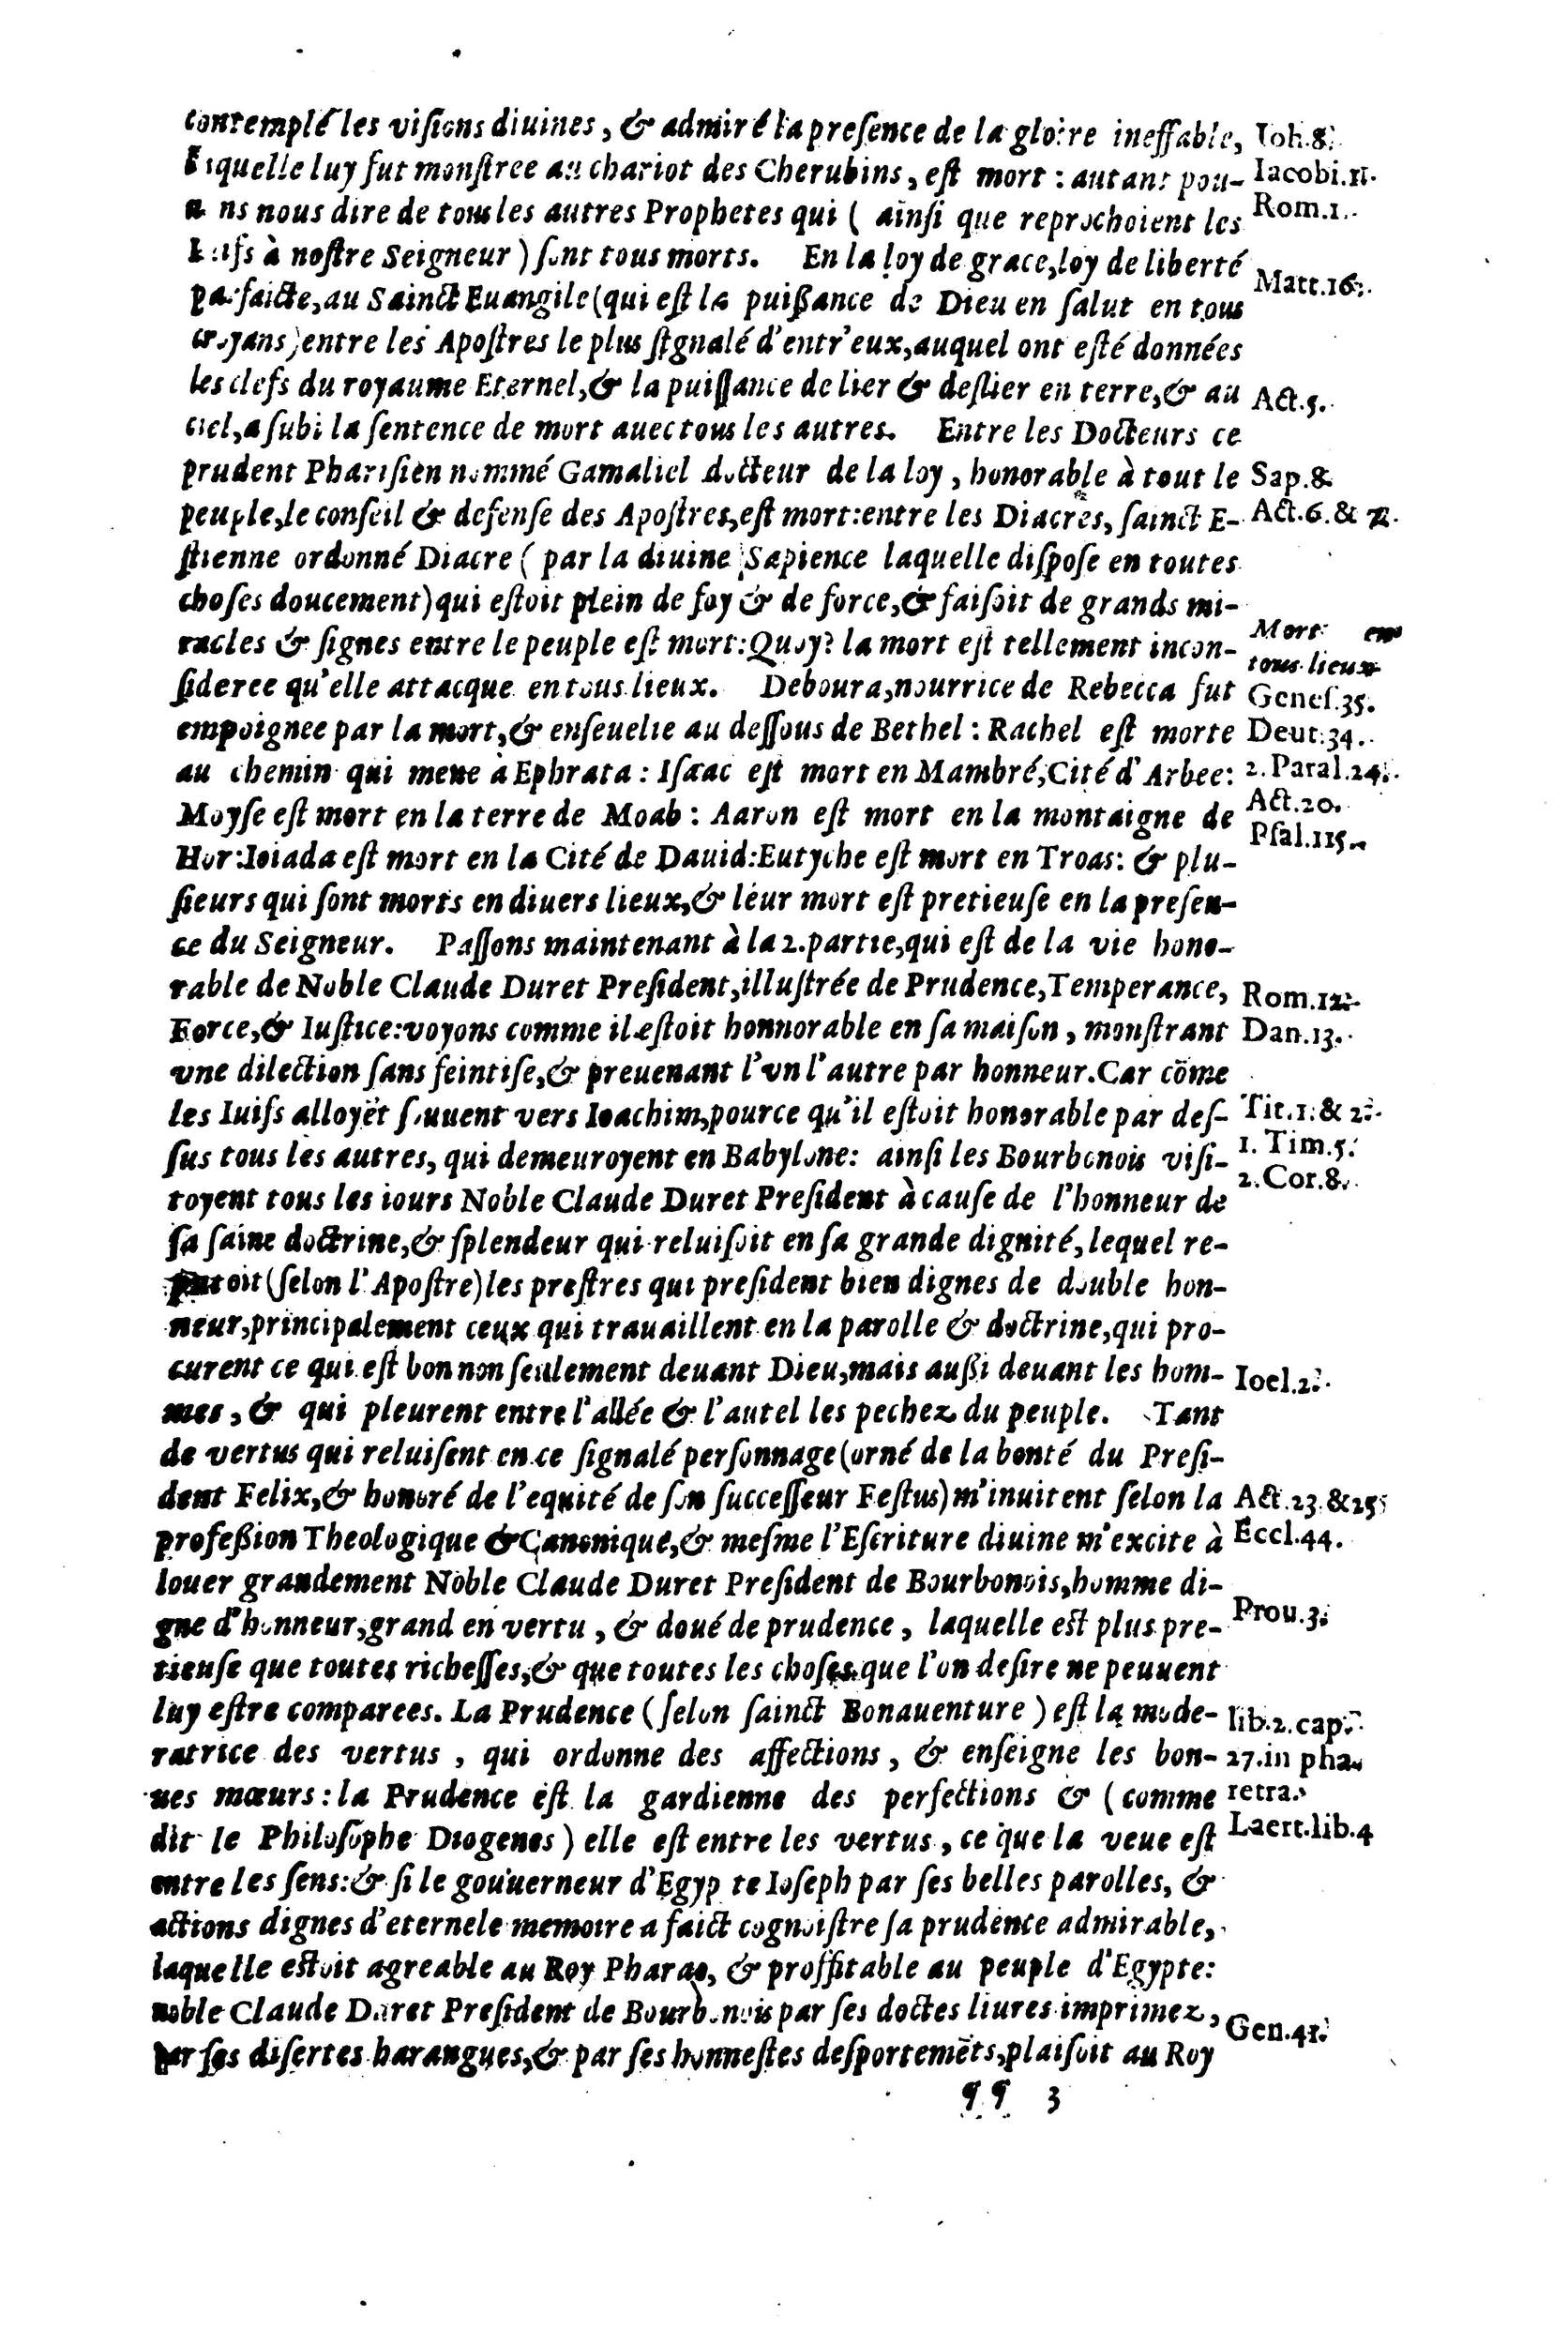 contemplé les visions diuines, & admiré la presence de la gloire ineffable,
laquelle luy fut monstree au chariot des Cherubins, est mort : autant pou-
uons nous dire de tous les autres Prophetes qui ( ainsi que reprochoient les
Iuifs à nostre Seigneur ) sont tous morts. En la loy de grace, loy de liberté
parfaicte, au Sainct Euangile (qui est la puissance de Dieu en salut en tous
croyans) entre les Apostres le plus signalé d'entr'eux, auquel ont esté données
les clefs du royaume Eternel, & la puissance de lier & deslier en terre, & au
ciel, a subi la sentence de mort auec tous les autres. Entre les Docteurs ce
prudent Pharisien nommé Gamaliel docteur de la loy, honorable à tout le
peuple, le conseil & defense des Apostres, est mort: entre les Diacres, sainct E-
stienne ordonné Diacre ( par la diuine Sapience laquelle dispose en toutes
choses doucement) qui estoit plein de foy & de force, & faisoit de grands mi-
racles & signes entre le peuple est mort: Quoy? la mort est tellement incon-
sideree qu'elle attacque en tous lieux. Deboura, nourrice de Rebecca fut
empoignee par la mort, & enseuelie au dessous de Bethel : Rachel est morte
au chemin qui mene à Ephrata : Isaac est mort en Mambré, Cité d'Arbee:
Moyse est mort en la terre de Moab : Aaron est mort en la montaigne de
Hor: Ioiada est mort en la Cité de Dauid: Eutyche est mort en Troas: & plu-
sieurs qui sont morts en diuers lieux, & leur mort est pretieuse en la presen-
ce du Seigneur. Passons maintenant à la 2. partie, qui est de la vie hono-
rable de Noble Claude Duret President, illustrée de Prudence, Temperance,
Force, & Iustice: voyons comme il estoit honnorable en sa maison, monstrant
vne dilection sans feintise, & preuenant l'vn l'autre par honneur. Car cõme
les Iuifs alloyẽt souuent vers Ioachim, pource qu'il estoit honorable par des-
sus tous les autres, qui demeuroyent en Babylone: ainsi les Bourbonois visi-
toyent tous les iours Noble Claude Duret President à cause de l'honneur de
sa saine doctrine, & splendeur qui reluisoit en sa grande dignité, lequel re-
putoit (selon l'Apostre) les prestres qui president bien dignes de double hon-
neur, principalement ceux qui trauaillent en la parolle & doctrine, qui pro-
curent ce qui est bon non seulement deuant Dieu, mais aussi deuant les hom-
mes, & qui pleurent entre l'allée & l'autel les pechez du peuple. Tant
de vertus qui reluisent en ce signalé personnage (orné de la bonté du Presi-
dent Felix, & honoré de l'equité de son successeur Festus) m'inuitent selon la
profession Theologique & Canonique, & mesme l'Escriture diuine m'excite à
louer grandement Noble Claude Duret President de Bourbonois, homme di-
gne d'honneur, grand en vertu, & doué de prudence, laquelle est plus pre-
tieuse que toutes richesses, & que toutes les choses que l'on desire ne peuuent
luy estre comparees. La Prudence ( selon sainct Bonauenture ) est la mode-
ratrice des vertus, qui ordonne des affections, & enseigne les bon-
nes mœurs : la Prudence est la gardienne des perfections & ( comme
dit le Philosophe Diogenes) elle est entre les vertus, ce que la veue est
entre les sens: & si le gouuerneur d'Egypte Ioseph par ses belles parolles, &
actions dignes d'eternele memoire a faict cognoistre sa prudence admirable,
laquelle estoit agreable au Roy Pharao, & proffitable au peuple d'Egypte:
noble Claude Duret President de Bourbonois par ses doctes liures imprimez,
par ses disertes harangues, & par ses honnestes desportemẽts, plaisoit au Roy
¶¶ 3
Ioh.8.
Iacobi.11.
Rom.1.
Matt.16.
Act.5.
Sap.8.
Act.6.& 7.
Mort en
tous lieux
Genes.35.
Deut.34.
2. Paral.24.
Act.20.
Psal.115.
Rom.12.
Dan.13.
Tit.1.& 2.
1. Tim.5.
2. Cor.8.
Ioel.2.
Act.23.&25
Eccl.44.
Prou.3.
lib.2.cap.
27.in pha-
retra.
Laert.lib.4
Gen.41.